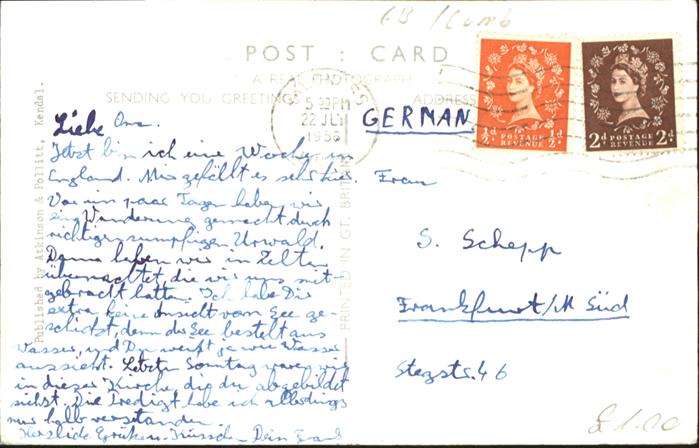 FB / Cumb
POST : CARD
A REAL PHOTOGRAPH
SENDING YOU GREETINGS
ADDRESS
5 PM
22 JLY
1956
GERMAN
½d POSTAGE REVENUE ½d
2d POSTAGE REVENUE 2d
Published by Atkinson & Pollitt, Kendal.
PRINTED IN GT. BRIT
Liebe Oma.
Jetzt bin ich eine Woche in
England. Mir gefällt es sehr hier.
Vor ein paar Tagen haben wir
eine Wanderung gemacht durch
richtigen sumpfigen Urwald.
Dann haben wir in Zelten
übernachtet, die wir uns mit-
gebracht hatten. Ich habe Dir
extra keine Ansicht vom See ge-
schickt, denn der See besteht aus
Wasser, und Du weißt ja wie Wasser
aussieht. Letzten Sonntag waren wir
in dieser Kirche, die du abgebildet
siehst. Die Predigt habe ich allerdings
nur halb verstanden.
Herzliche Grüße u. Küsschen Dein Frank
Frau
S. Schepp
Frankfurt/M Süd
Stegstr. 46
£1.00